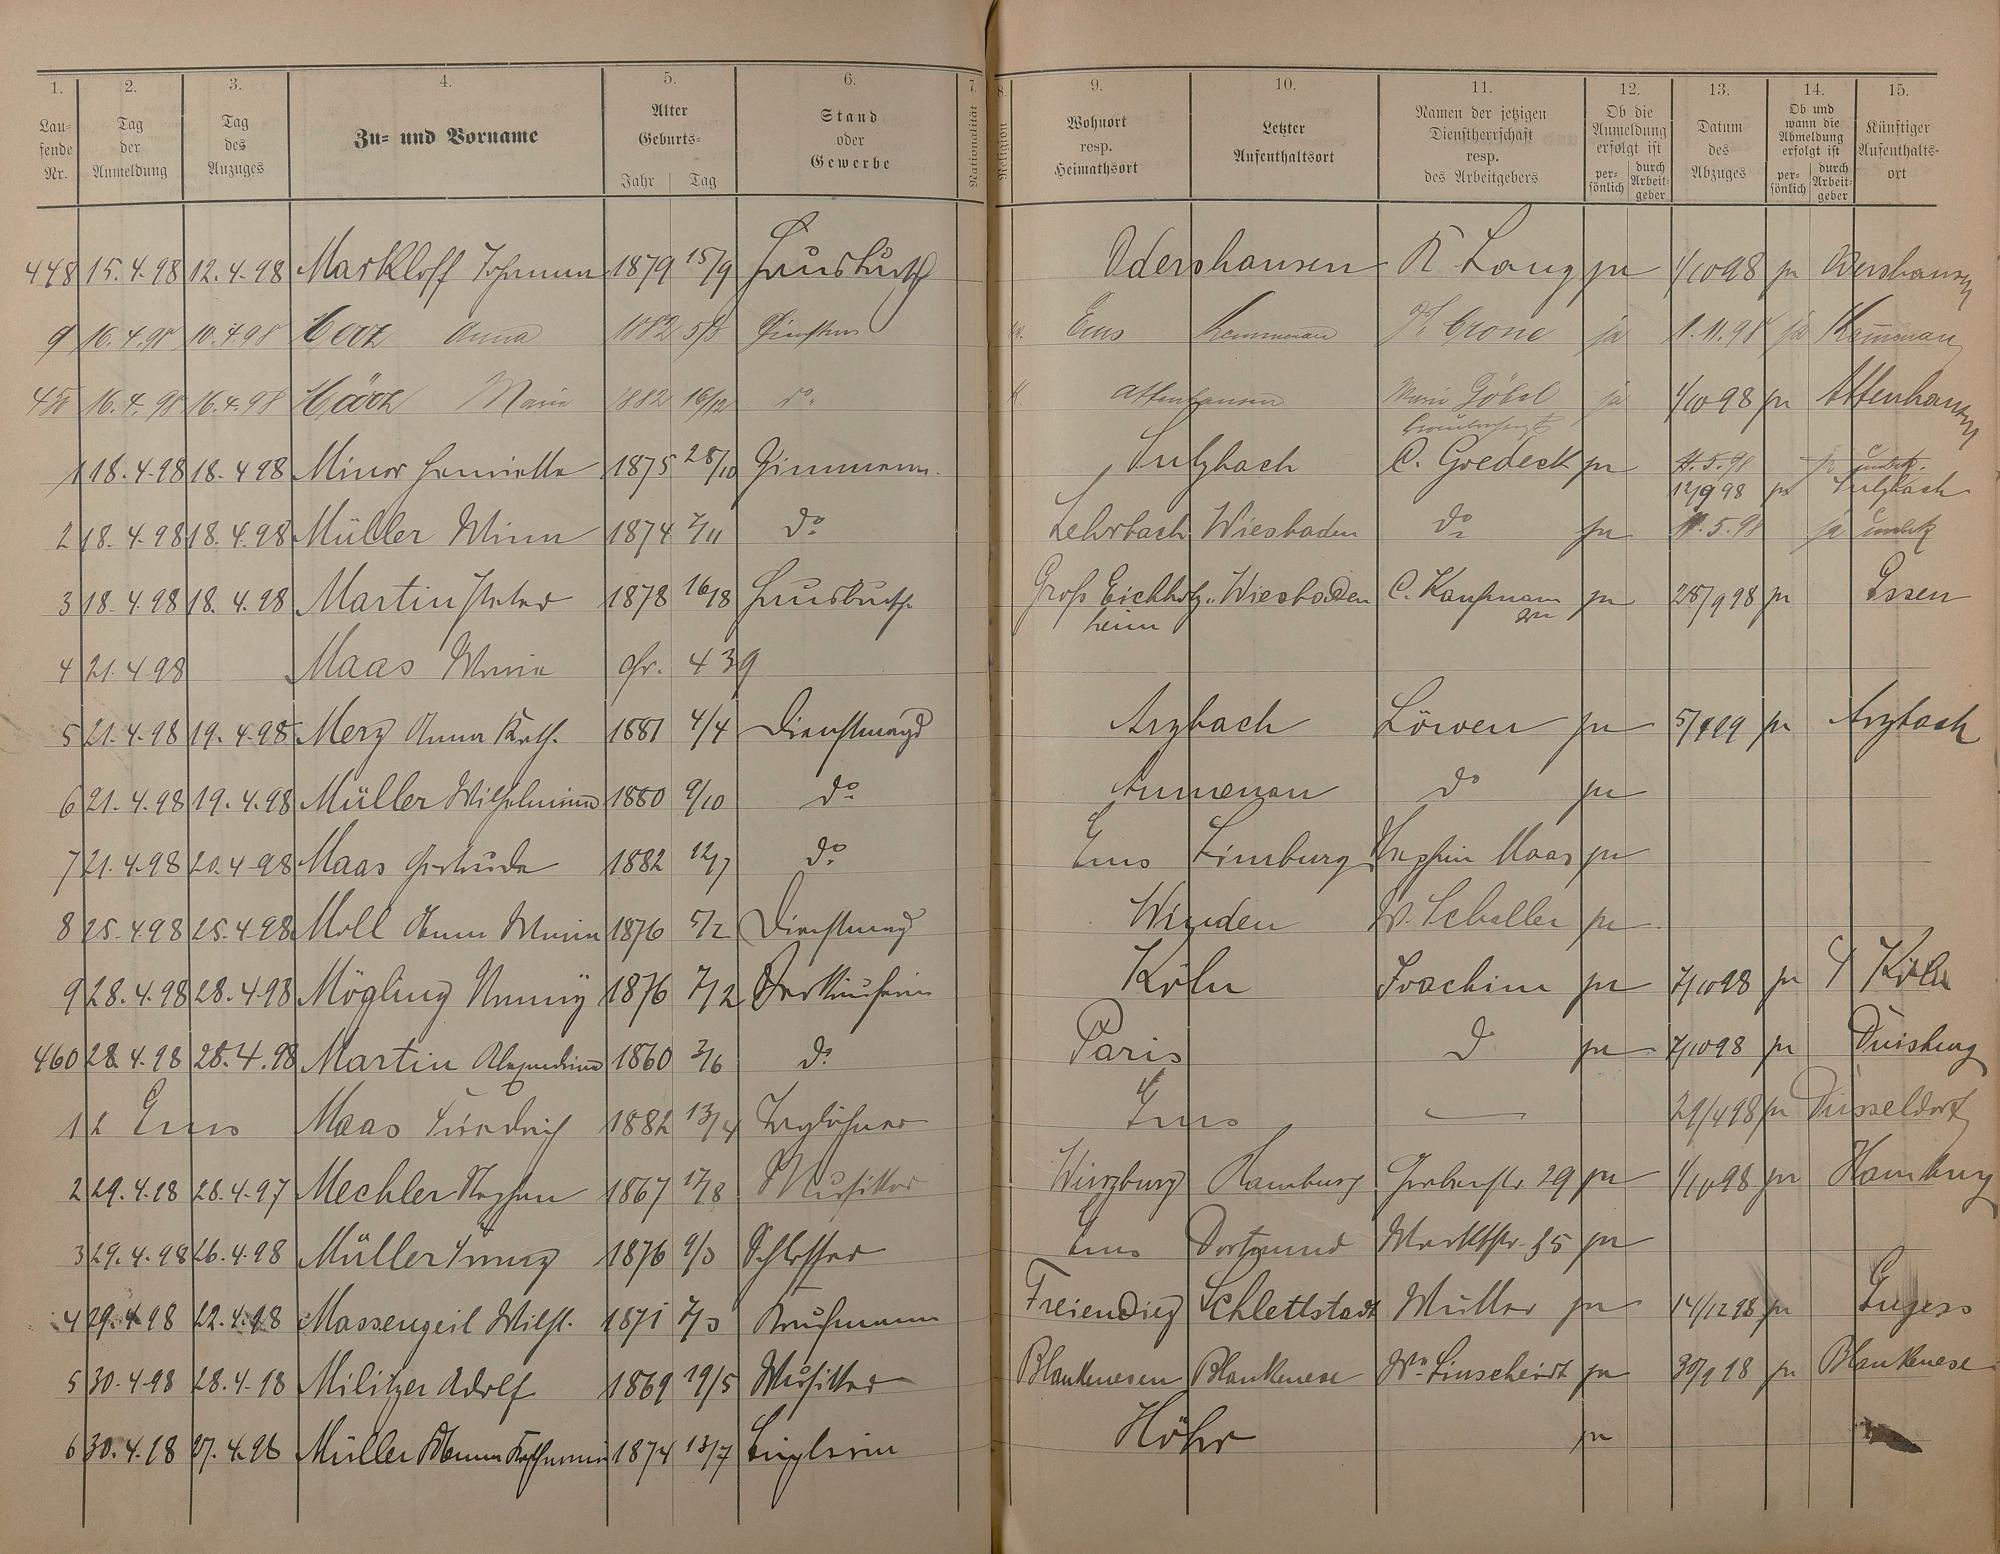 1. 2. 3. 4. 5. 6. 7. 8. 9. 10. 11. 12. 13. 14. 15.
Laufende Nr.
Tag der Anmeldung
Tag des Anzuges
Zu- und Vorname
Alter
Geburts-
Jahr Tag
Stand oder Gewerbe
Nationalität
Religion
Wohnort resp. Heimathsort
Letzter Aufenthaltsort
Namen der jetzigen Dienstherrschaft resp. des Arbeitgebers
Ob die Anmeldung erfolgt ist
persönlich durch Arbeitgeber
Datum des Abzuges
Ob und wann die Abmeldung erfolgt ist
persönlich durch Arbeitgeber
Künftiger Aufenthaltsort
448 15.4.98 12.4.98 Markloff Johann 1879 15/9 Hausbursch Odershausen K Lang ja 1/10 98 ja
9 16.4.98 10.4.98 Anna 1882 Ems Kemmenau Crone ja 1.11.98 ja Kemmenau
450 16.4.98 16.4.98 Marie 1882 16/12 do. Attenhausen Göbel ja 1/10 98 ja Attenhausen
1 18.4.98 18.4.98 Minor Henriette 1875 28/10 Sulzbach C. Goedeck ja 12/9 98 ja Sulzbach
2 18.4.98 18.4.98 Müller Minn 1874 do Lehrbach Wiesbaden do ja 5.98 ja
3 18.4.98 18.4.98 Martin Peter 1878 16/8 Hausbursche Groß Eichholzheim Wiesbaden C. Kaufmann ja 28/9 98 ja Essen
4 21.4.98 Maas Maria cfr. 439
5 21.4.98 19.4.98 Merz Anna Kath. 1881 4/4 Dienstmagd Arzbach Löwen ja ja Arzbach
6 21.4.98 19.4.98 Müller Wilhelmine 1880 9/10 do Aumenau do ja
7 21.4.98 20.4.98 Maas Gertrude 1882 12/7 do Ems Limburg Maas ja
8 25.4.98 25.4.98 Moll Anna Maria 1876 5/2 Dienstmagd Winden W. Schaller ja
9 28.4.98 28.4.98 Mögling Nanny 1876 7/12 Verkäuferin Köln Joachim ja 7/10 98 ja Köln
460 28.4.98 28.4.98 Martin Alexandrine 1860 3/6 do Paris do ja 7/10 98 ja Duisburg
1 Ems Maas Friedrich 1882 13/4 Taglöhner Ems — 29/4 98 ja Düsseldorf
2 29.4.98 28.4.97 Mechler Stephan 1867 17/8 Musiker Würzburg Hamburg Grabenstr 29 ja 1/10 98 ja Hamburg
3 29.4.98 26.4.98 Müller Franz 1876 9/3 Schlosser Ems Dortmund Marktstr. 35 ja
4 29.4.98 22.4.98 Massengeil Wilh. 1871 7/3 Kaufmann Freiendiez Schlettstadt Müller ja 14/12 98 ja Engers
5 30.4.98 28.4.98 Militzer Adolf 1869 19/5 Musiker Blankenesen Blankenese Wm Linscheidt ja 30/9 98 ja Blankenese
6 30.4.98 27.4.98 Müller Anna Katharina 1874 13/7 Büglerin Höhr ja